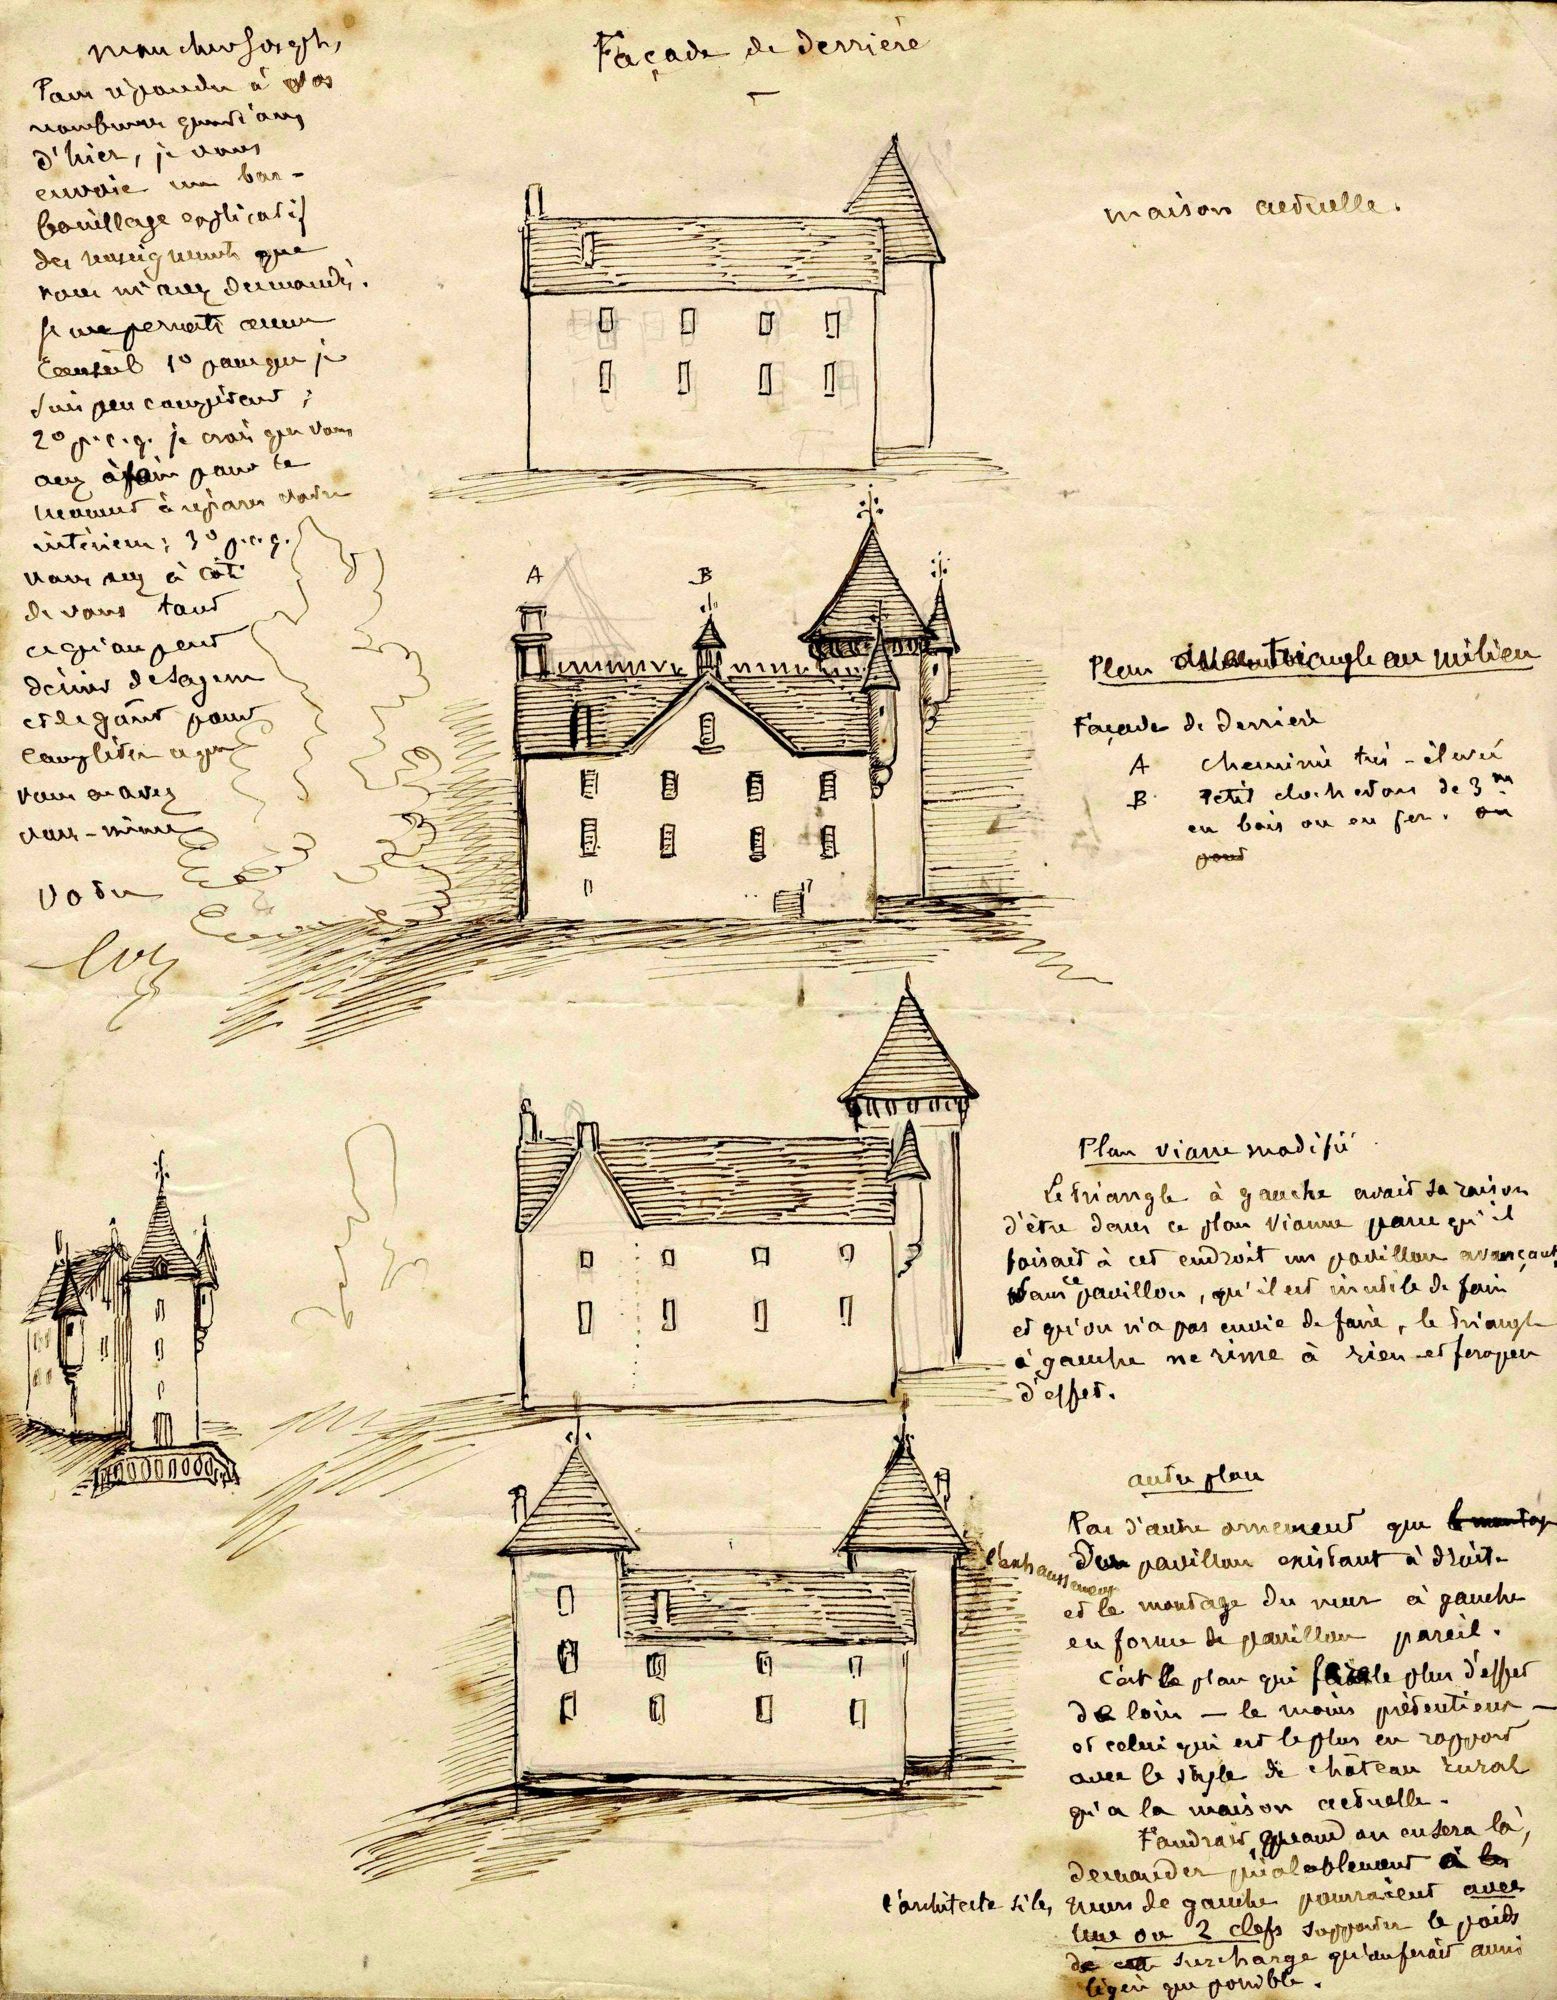 mon cher Joseph,
Pour répondre à vos
nombreuses questions
d'hier, je vous
envoie un bar-
bouillage explicatif
des renseignements que
vous m'avez demandés.
Je me permets aucun
Conseil 1º parce que je
suis peu compétent ;
2º p.c.q. je crois que vous
avez à faire pour le
moment à réparer votre
intérieur ; 3º p.c.q.
vous avez à côté
de vous tout
ce qu'on peut
désirer de sagesse
et de goût pour
compléter ce que
vous en avez
vous-même
Votre
Façade de derrière
maison actuelle.
A
B
Plan triangle au milieu
Façade de derrière
A cheminée très-élevée
B petit clochetons de 3m
en bois ou en fer. ou
pour
Plan Vianne modifié
Le triangle à gauche avait sa raison
d'être dans ce plan Vianne parce qu'il
faisait à cet endroit un pavillon avançant,
Sans ce pavillon, qu'il est inutile de faire
et qu'on n'a pas envie de faire, le triangle
à gauche ne rime à rien et fera peu
d'effet.
autre plan
Pas d'autre ornement que le montage
l'exhaussement
du pavillon existant à droite
et le montage du mur à gauche
en forme de pavillon pareil.
C'est le plan qui fait le plus d'effet
de loin — le moins prétentieux —
et celui qui est le plus en rapport
avec le style de château rural
qu'a la maison actuelle.
Faudrait, quand on en sera là,
demander préalablement à
l'architecte si les murs de gauche pourraient avec
une ou 2 clefs supporter le poids
de cette surcharge qu'on ferait aussi
légère que possible.